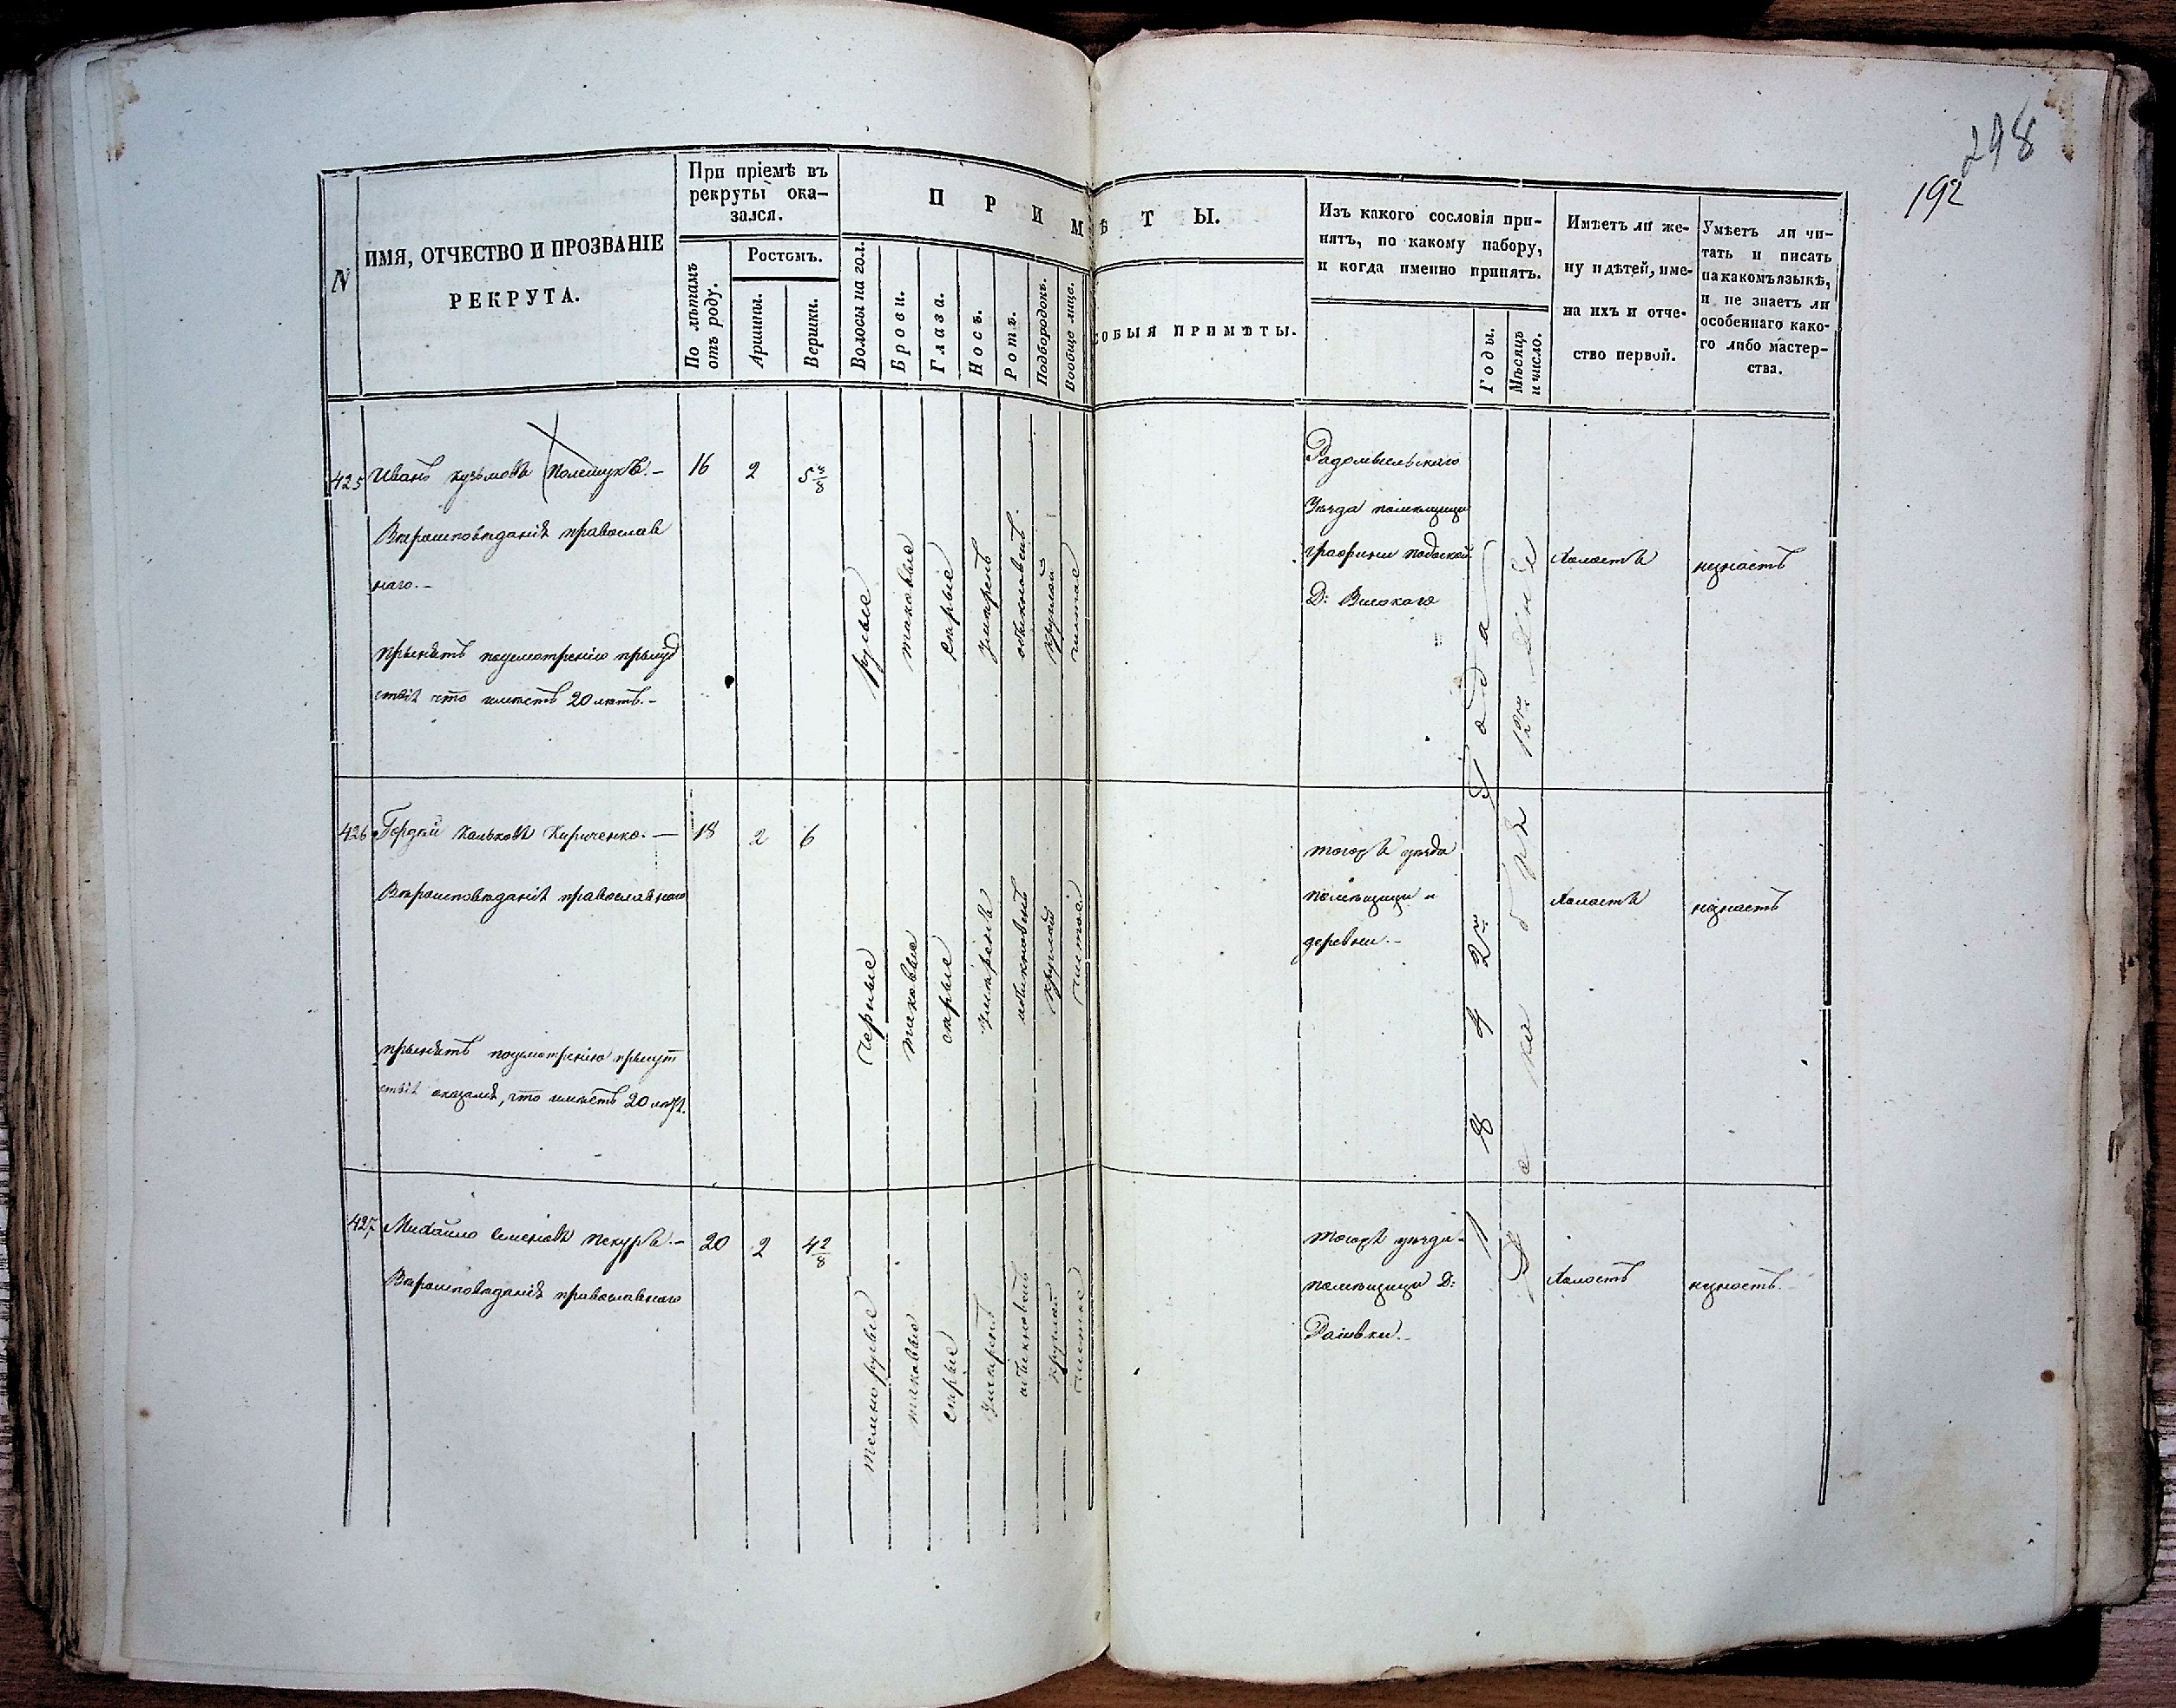 298
192
N
ИМЯ, ОТЧЕСТВО И ПРОЗВАНІЕ
РЕКРУТА.
При пріемѣ въ
рекруты ока-
зался.
По лѣтамъ
отъ роду.
Ростомъ.
Аршины.
Вершки.
ПРИМѢТЫ.
Волосы на гол.
Брови.
Глаза.
Носъ.
Ротъ.
Подбородокъ.
Вообще лице.
СОБЫЯ ПРИМѢТЫ.
Изъ какого сословія при-
нятъ, по какому набору,
и когда именно принятъ.
Годы.
Мѣсяцъ
и число.
Имѣетъ ли же-
ну и дѣтей, име-
на ихъ и отче-
ство первой.
Умѣетъ ли чи-
тать и писать
на какомъ языкѣ,
и не знаетъ ли
особеннаго како-
го либо мастер-
ства.
425 Иванъ Кузьмовъ Полещукъ.-
Вѣроисповѣданія православ
наго.-
принятъ поусмотрѣнію присуд
ствія что имѣетъ 20 лѣтъ.-
16 2 5 5/8
русые
таковые
сѣрые
умѣренъ
обыкновенъ
круглой
чистое
Радомысльскаго
Уѣзда помѣщицы
графини
Д: Высокаго
холостъ
незнаетъ
426 Гордѣй Кириченко.-
Вѣроисповѣданія православнаго
принятъ поусмотрѣнію присут
ствія оказался, что имѣетъ 20 лѣтъ.
18 2 6
черные
таковые
сѣрые
умѣренъ
обыкновенъ
круглой
чистое
тогожъ уѣзда
помѣщицы и
деревни.-
холостъ
незнаетъ
427 Михайло Семеновъ Пекуръ.-
Вѣроисповѣданія православнаго
20 2 4 2/8
темнорусые
таковые
сѣрые
умѣренъ
обыкновенъ
круглой
чистое
тогожъ уѣзда
помѣщицы Д:
холостъ
незнаетъ.
1842го Года
Декабря 12го дня